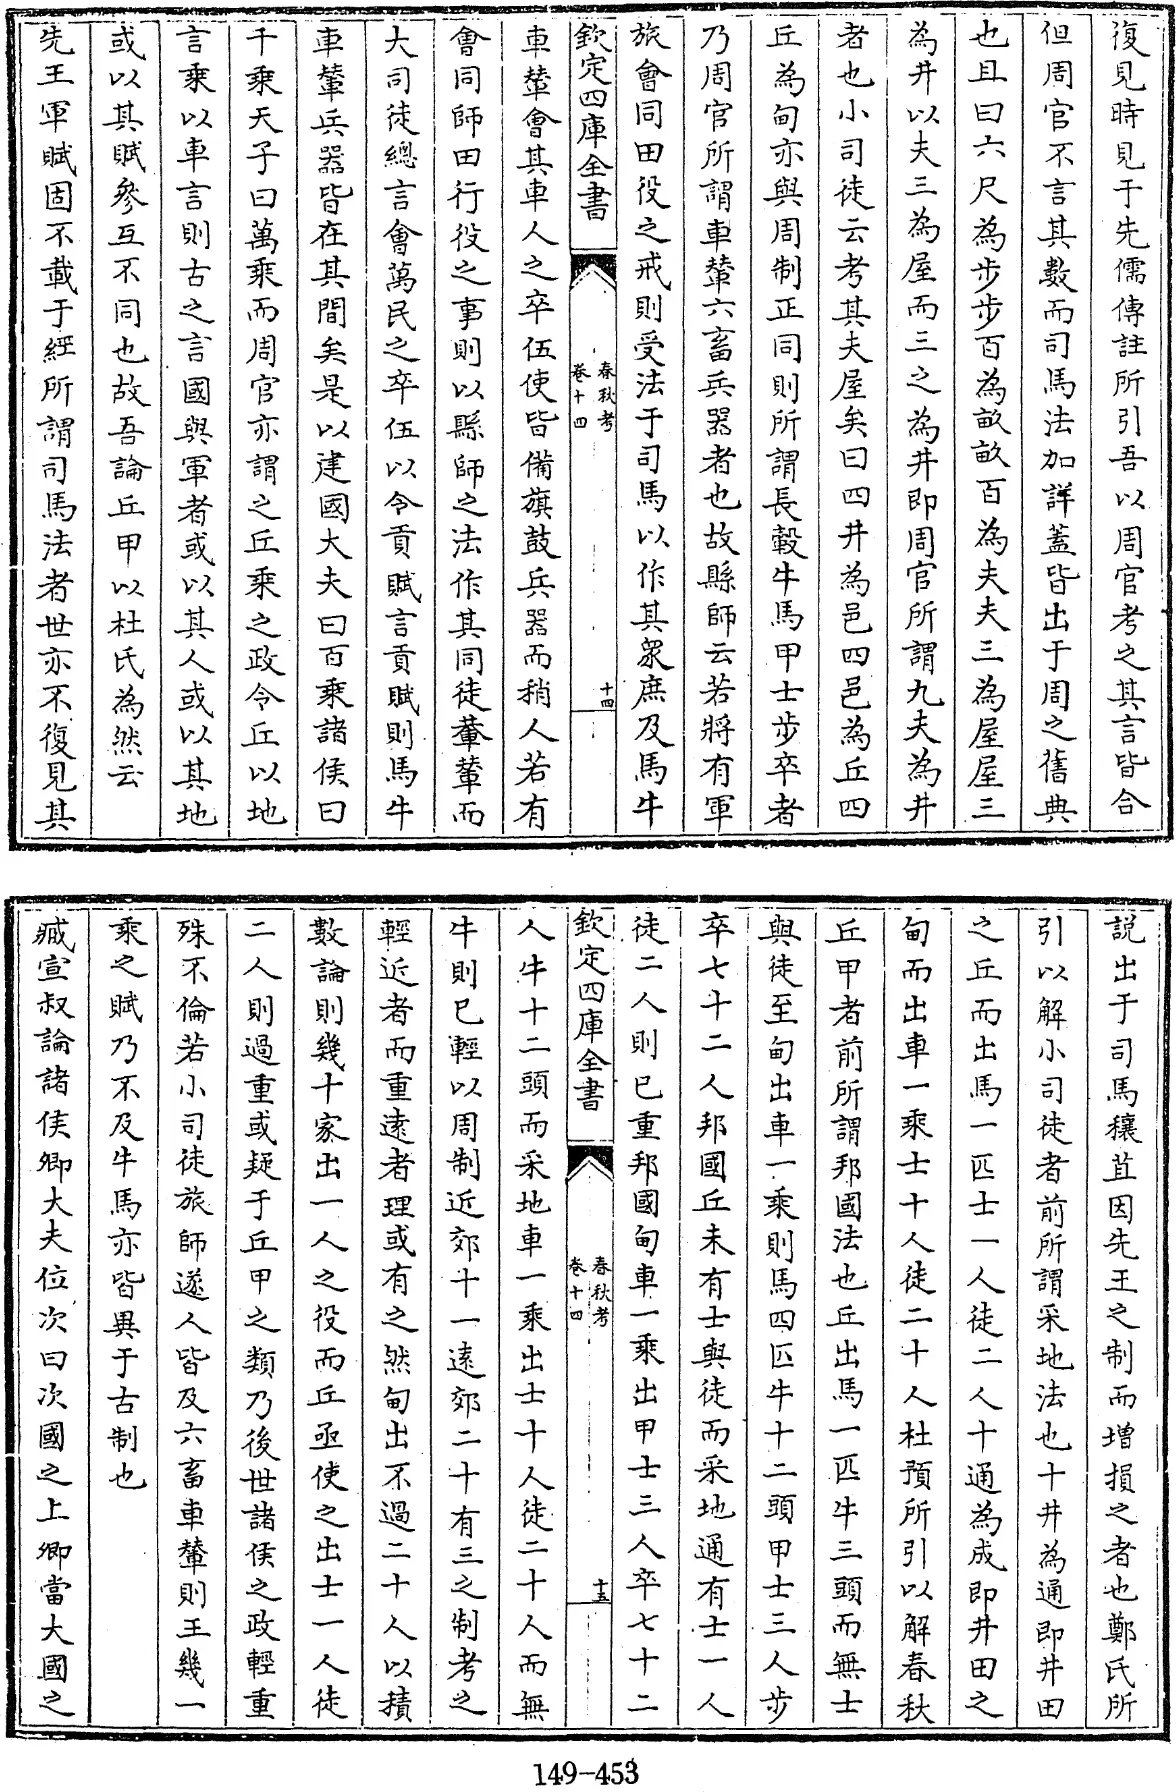 復見時見于先儒傳註所引吾以周官考之其言皆合
但周官不言其數而司馬法加詳蓋皆出于周之舊典
也且曰六尺為步步百為畝畝百為夫夫三為屋屋三
為井以夫三為屋而三之為井即周官所謂九夫為井
者也小司徒云考其夫屋矣曰四井為邑四邑為丘四
丘為甸亦與周制正同則所謂長轂牛馬甲士步卒者
乃周官所謂車輦六畜兵器者也故縣師云若將有軍
旅會同田役之戒則受法于司馬以作其衆庶及馬牛
欽定四庫全書
春秋考
卷十四
十四
車輦會其車人之卒伍使皆備旗鼓兵器而稍人若有
會同師田行役之事則以縣師之法作其同徒輂輦而
大司徒總言會萬民之卒伍以令貢賦言貢賦則馬牛
車輦兵器皆在其間矣是以建國大夫曰百乘諸侯曰
千乘天子曰萬乘而周官亦謂之丘乘之政令丘以地
言乘以車言則古之言國與軍者或以其人或以其地
或以其賦參互不同也故吾論丘甲以杜氏為然云
先王軍賦固不載于經所謂司馬法者世亦不復見其
説出于司馬穰苴因先王之制而增損之者也鄭氏所
引以解小司徒者前所謂采地法也十井為通即井田
之丘而出馬一匹士一人徒二人十通為成即井田之
甸而出車一乘士十人徒二十人杜預所引以解春秋
丘甲者前所謂邦國法也丘出馬一匹牛三頭而無士
與徒至甸出車一乘則馬四匹牛十二頭甲士三人步
卒七十二人邦國丘未有士與徒而采地通有士一人
徒二人則已重邦國甸車一乘出甲士三人卒七十二
欽定四庫全書
春秋考
卷十四
十五
人牛十二頭而采地車一乘出士十人徒二十人而無
牛則已輕以周制近郊十一遠郊二十有三之制考之
輕近者而重遠者理或有之然甸出不過二十人以積
數論則幾十家出一人之役而丘亟使之出士一人徒
二人則過重或疑于丘甲之類乃後世諸侯之政輕重
殊不倫若小司徒旅師遂人皆及六畜車輦則王幾一
乘之賦乃不及牛馬亦皆異于古制也
臧宣叔論諸侯卿大夫位次曰次國之上卿當大國之
149-453